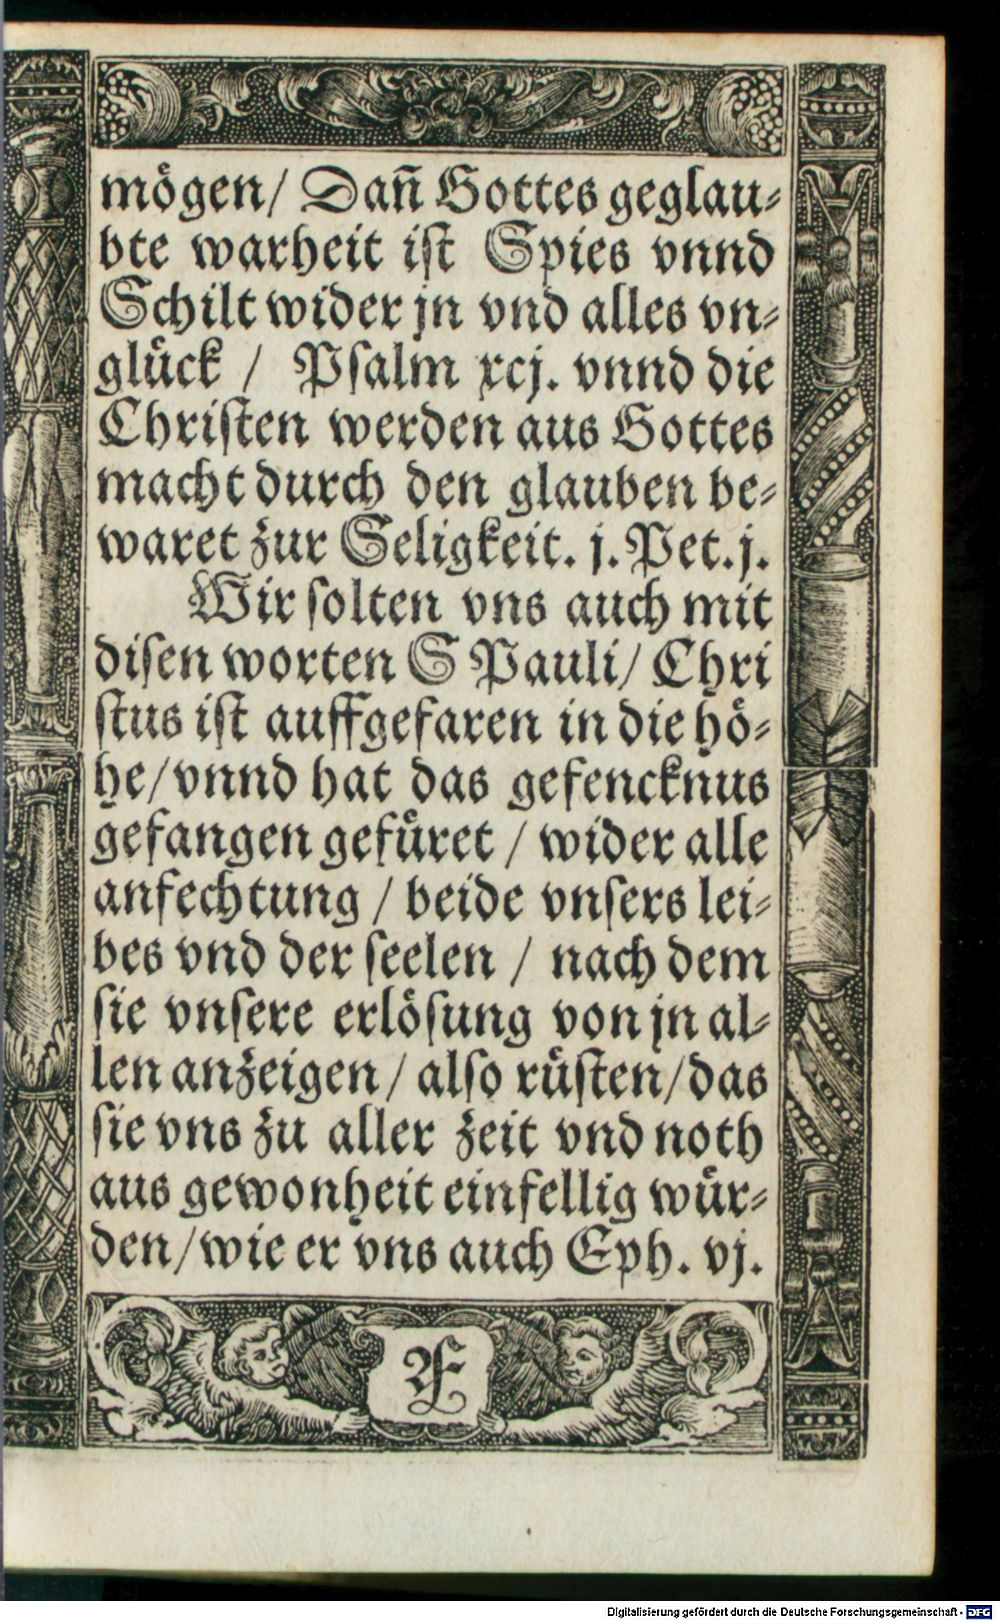 mögen/ Dañ Gottes geglau⸗
bte warheit ist Spies vnnd
Schilt wider jn vnd alles vn⸗
glück / Psalm xcj. vnnd die
Christen werden aus Gottes
macht durch den glauben be⸗
waret zur Seligkeit. j. Pet. j.
Wir solten vns auch mit
disen worten S Pauli/ Chri
stus ist auffgefaren in die hö⸗
he/ vnnd hat das gefencknus
gefangen gefüret / wider alle
anfechtung / beide vnsers lei⸗
bes vnd der seelen / nach dem
sie vnsere erlösung von jn al⸗
len anzeigen / also rüsten/ das
sie vns zu aller zeit vnd noth
aus gewonheit einfellig wür⸗
den/ wie er vns auch Eph. vj.
F
Digitalisierung gefördert durch die Deutsche Forschungsgemeinschaft - DFG